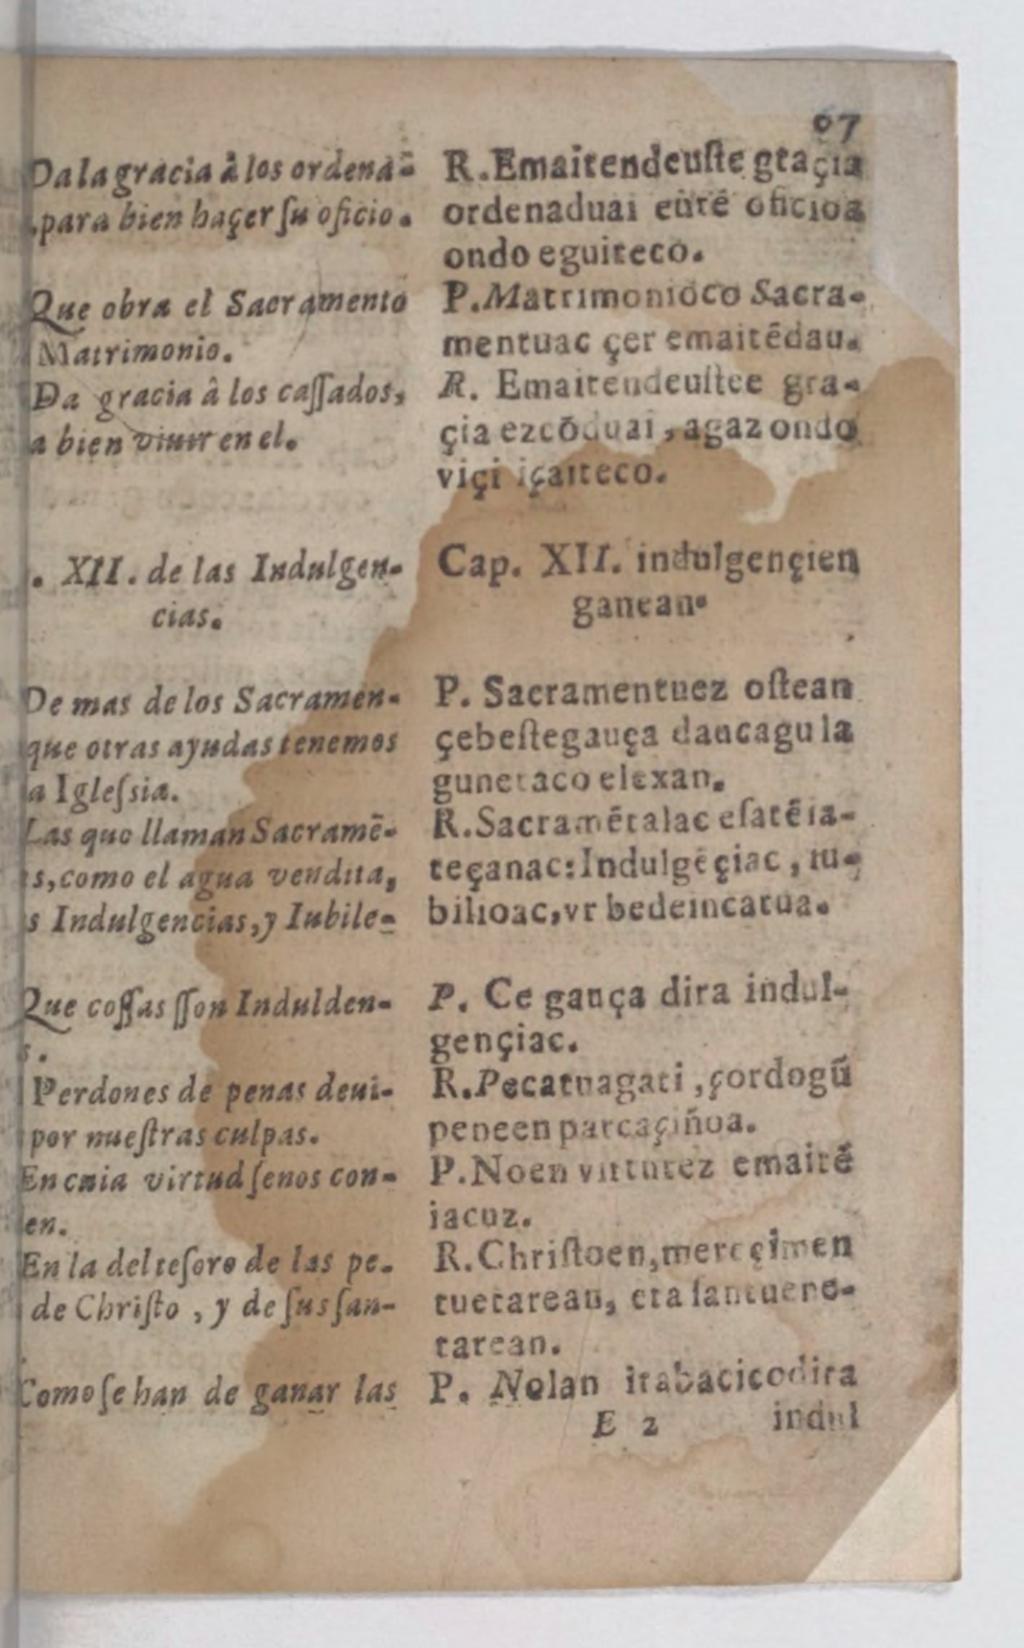 67
Da la gracia â los ordenā-
para bien haçer ſu oficio.
Que obra el Sacramento
Matrimonio.
Da gracia â los caſſados,
a bien viuir en el.
. XII. de las Indulgen-
cias.
De mas de los Sacramen-
que otras ayudas tenemos
a Igleſsia.
Las que llaman Sacramē-
s, como el agua vendita,
s Indulgencias, y Iubile-
Que coſſas ſſon Indulden-
s.
Perdones de penas deui-
por nueſtras culpas.
En cuia virtud ſenos con-
en.
En la del teſoro de las pe-
de Chriſto, y de ſus ſan-
Como ſe han de ganar las
R. Emaitendeuſte graçia
ordenaduai eurē oficioa
ondo eguiteco.
P. Matrimonioco Sacra-
mentuac çer emaitēdau.
R. Emaitendeuſtee gra-
çia ezcōduai, agaz ondo
viçi içaiteco.
Cap. XII. indulgençien
ganean.
P. Sacramentuez oſtean
çebeſtegauça daucagula
gunetaco elexan.
R. Sacramētalac eſatēia-
teçanac: Indulgēçiac, iu-
bilioac, vr bedeincatua.
P. Ce gauça dira indul-
gençiac.
R. Pecatuagati, çordogū
peneen parcaçiñoa.
P. Noen virtutez emaitē
iacuz.
R. Chriſtoen, mereçimen
tuetarean, eta ſantuene-
tarean.
P. Nolan irabacicodira
E 2 indul